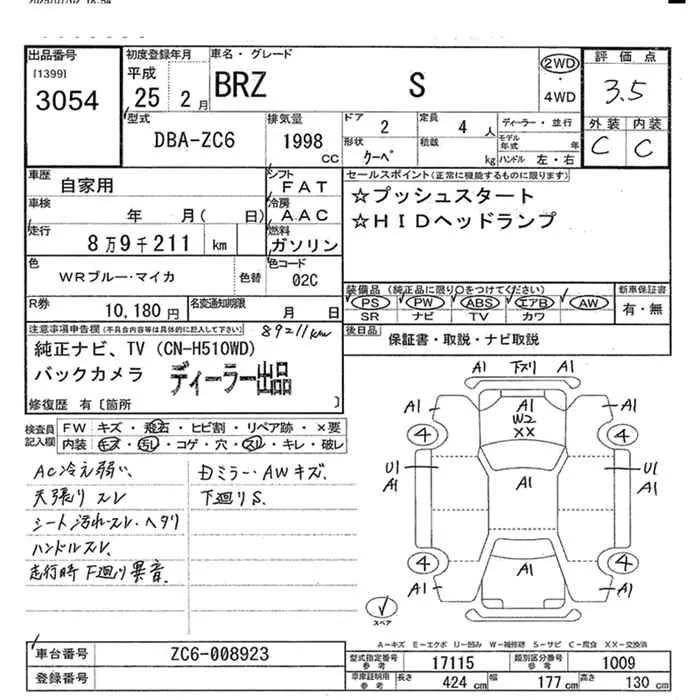 出品番号
[1399]
3054
初度登録年月
平成
25 2月
車名・グレード
BRZ S
2WD
・
4WD
評価点
3.5
外装 内装
C C
型式
DBA-ZC6
排気量
1998
CC
ドア
2
定員
4 人
形状
クーペ
積載
kg
ディーラー・並行
モデル年式 年
ハンドル 左・右
車歴
自家用
シフト
FAT
車検
年 月( 日)
冷房
AAC
走行
8万9千211 km
燃料
ガソリン
色
WRブルー・マイカ
色替
色コード
02C
R券
10,180円
名変通知期限
月 日
セールスポイント(正常に機能するものに限ります)
☆プッシュスタート
☆HIDヘッドランプ
装備品(純正品に限り○をつけてください)
PS PW ABS エアB AW
SR ナビ TV カワ
新車保証書
有・無
後日品
保証書・取説・ナビ取説
注意事項申告欄(不具合内容等は具体的に記入して下さい)
89211km
純正ナビ、TV(CN-H510WD)
バックカメラ ディーラー出品
修復歴 有〔箇所 〕
検査員記入欄
FW キズ・飛石・ヒビ割・リペア跡・×要
内装 キズ・汚れ・コゲ・穴・スレ・キレ・破レ
AC冷え弱い、
天張りスレ
シート汚れ・スレ・ヘタリ
ハンドルスレ、
走行時下廻り異音、
Dミラー・AWキズ、
下廻りS、
A1 下スリ A1
A1 A1 A1
W2
XX
4 4
U1 A1 U1
A1 A1
4 4
A1 A1 A1
スペア
A-キズ E-エクボ U-凹み W-補修跡 S-サビ C-腐食 XX-交換済
車台番号
ZC6-008923
登録番号
型式指定番号
参考
17115
類別区分番号
参考
1009
車庫証明用
参考
長さ
424 cm
幅
177 cm
高さ
130 cm